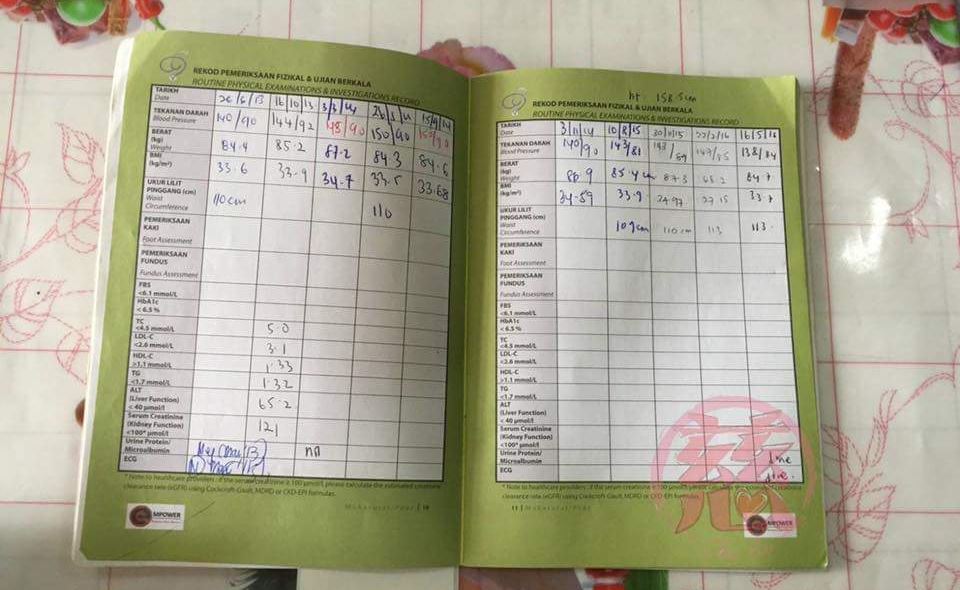 REKOD PEMERIKSAAN FIZIKAL & UJIAN BERKALA
ROUTINE PHYSICAL EXAMINATIONS & INVESTIGATIONS RECORD
TARIKH
Date 16/10/13
TEKANAN DARAH
Blood Pressure 140/90 144/92 148/90 150/90
BERAT
(kg)
Weight 84.4 85.2 87.2 84.3 84.6
BMI
(kg/m²) 33.6 33.9 34.7 33.5 33.68
UKUR LILIT
PINGGANG (cm)
Waist
Circumference 110cm 110
PEMERIKSAAN
KAKI
Foot Assessment
PEMERIKSAAN
FUNDUS
Fundus Assessment
FBS
<6.1 mmol/L
HbA1c
< 6.5 %
TC
<4.5 mmol/L 5.0
LDL-C
<2.6 mmol/L 3.1
HDL-C
>1.1 mmol/L 1.33
TG
<1.7 mmol/L 1.32
ALT
(Liver Function)
< 40 µmol/l 65.2
Serum Creatinine
(Kidney Function)
<100* µmol/l 121
Urine Protein/
Microalbumin
ECG
* Note to healthcare providers : if the serum creatinine is ≥ 100 µmol/l, please calculate the estimated creatinine
clearance rate (eGFR) using Cockcroft-Gault, MDRD or CKD-EPI formulas.
MPOWER
ht: 158.5cm
REKOD PEMERIKSAAN FIZIKAL & UJIAN BERKALA
ROUTINE PHYSICAL EXAMINATIONS & INVESTIGATIONS RECORD
TARIKH
Date 3/11/14 10/8/15 30/11/15 22/2/16 16/5/16
TEKANAN DARAH
Blood Pressure 140/90 143/81 138/84
BERAT
(kg)
Weight 86.9 85.4 87.3
BMI
(kg/m²) 34.59 33.9
UKUR LILIT
PINGGANG (cm)
Waist
Circumference 109cm 110cm 113 113
PEMERIKSAAN
KAKI
Foot Assessment
PEMERIKSAAN
FUNDUS
Fundus Assessment
FBS
<6.1 mmol/L
HbA1c
< 6.5 %
TC
<4.5 mmol/L
LDL-C
<2.6 mmol/L
HDL-C
>1.1 mmol/L
TG
<1.7 mmol/L
ALT
(Liver Function)
< 40 µmol/l
Serum Creatinine
(Kidney Function)
<100* µmol/l
Urine Protein/
Microalbumin
ECG
* Note to healthcare providers : if the serum creatinine
clearance rate (eGFR) using Cockcroft-Gault, MDRD or CKD-EPI formulas.
MPOWER